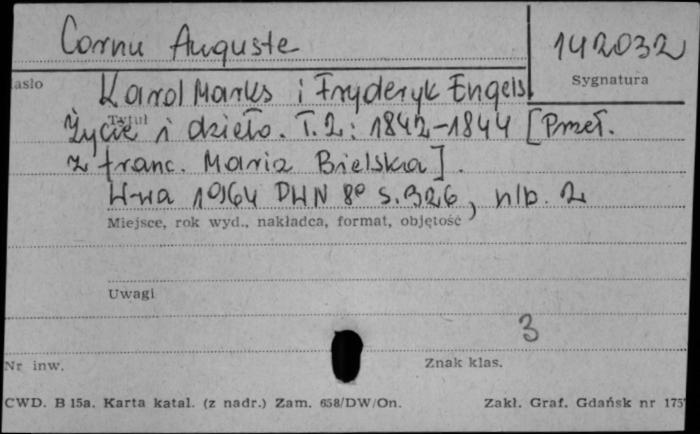 Cornu Auguste
142032
asło
Sygnatura
Karol Marks i Fryderyk Engels
Tytuł
Życie i dzieło. T. 2: 1842-1844 [Przeł.
z franc. Maria Bielska].
W-wa 1964 PWN 8° s. 326, nlb. 2
Miejsce, rok wyd., nakładca, format, objętość
Uwagi
3
Nr inw.
Znak klas.
CWD. B 15a. Karta katal. (z nadr.) Zam. 658/DW/On.
Zakł. Graf. Gdańsk nr 175